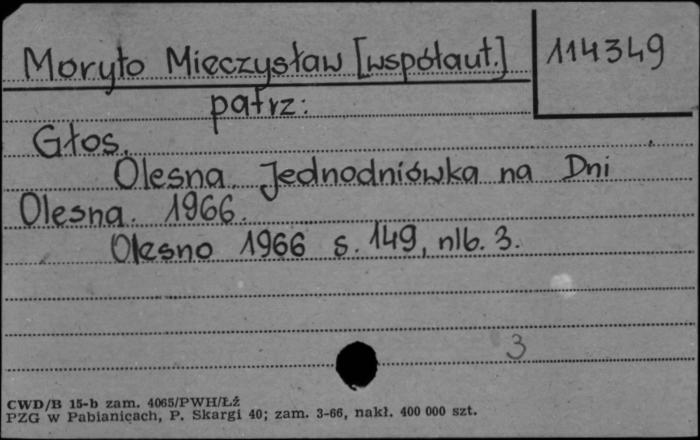 Moryto Mieczysław [współaut.]
114349
patrz:
Głos.
Olesna. Jednodniówka na Dni
Olesna. 1966.
Olesno 1966 s. 149, nlb. 3.
3
CWD/B 15-b zam. 4065/PWH/Łż
PZG w Pabianicach, P. Skargi 40; zam. 3-66, nakł. 400 000 szt.